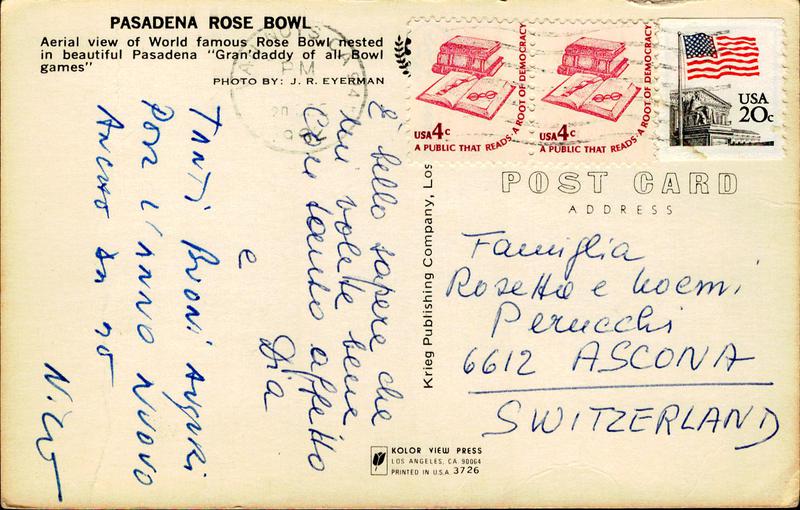 PASADENA ROSE BOWL
Aerial view of World famous Rose Bowl nested
in beautiful Pasadena "Gran'daddy of all Bowl
games"
PHOTO BY: J. R. EYERMAN
PM
20
USA 4c
A PUBLIC THAT READS: A ROOT OF DEMOCRACY
USA 4c
A PUBLIC THAT READS: A ROOT OF DEMOCRACY
USA
20c
POST CARD
ADDRESS
È bello sapere che
mi volete bene
Con tanto affetto
Dia
e
TANTI BUONI AUGURI
POR L'ANNO NUOVO
ANCHO DA NO
Nico
Krieg Publishing Company, Los
Famiglia
Rosetta e Noemi
Perucchi
6612 ASCONA
SWITZERLAND
KOLOR VIEW PRESS
LOS ANGELES, CA. 90064
PRINTED IN U.S.A. 3726